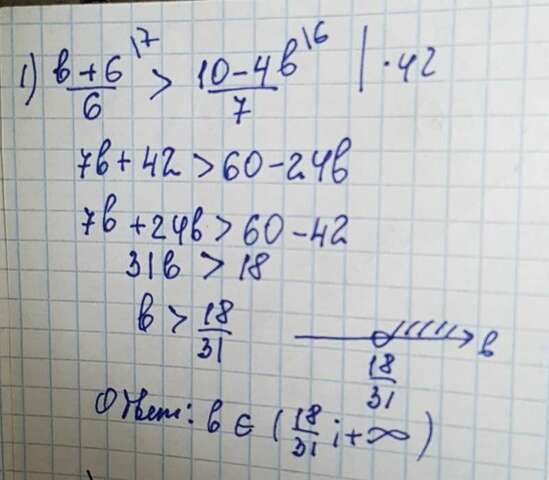 1) (b+6)/6 \7 > (10-4b)/7 \6 | ·42
7b+42>60-24b
7b+24b>60-42
31b > 18
b > 18/31
18/31 b
Ответ: b ∈ (18/31; +∞)